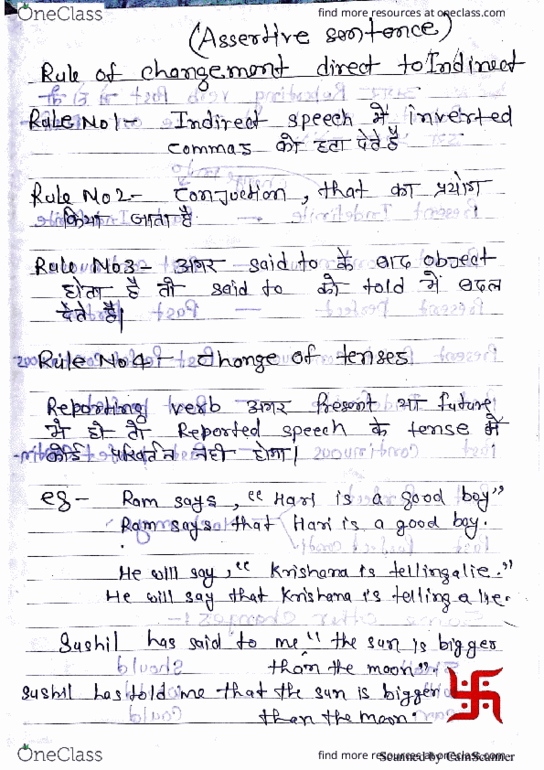 OneClass
find more resources at oneclass.com
(Assertive sentence)
Rule of changement direct to Indirect
Rule No 1- Indirect speech में inverted
commas को हटा देते है
Rule No 2- conjuction, that का प्रयोग
किया जाता है
Rule No 3- अगर said to के बाद object
होता है तो said to को told में बदल
देते है।
Rule No 4- Change of tenses
Reporting verb अगर Present या future
में हो तो Reported speech के tense में
कोई परिवर्तन नही होगा।
eg- Ram says, "Hari is a good boy"
Ram says that Hari is a good boy.
He will say, "Krishana is telling a lie."
He will say that Krishana is telling a lie.
Sushil has said to me "the sun is bigger
than the moon".
Sushil has told me that the sun is bigger
than the moon.
OneClass
find more resources at oneclass.com
Scanned by CamScanner